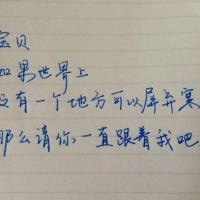 宝贝
如果世界上
没有一个地方可以屏弃寒
那么请你一直跟着我吧